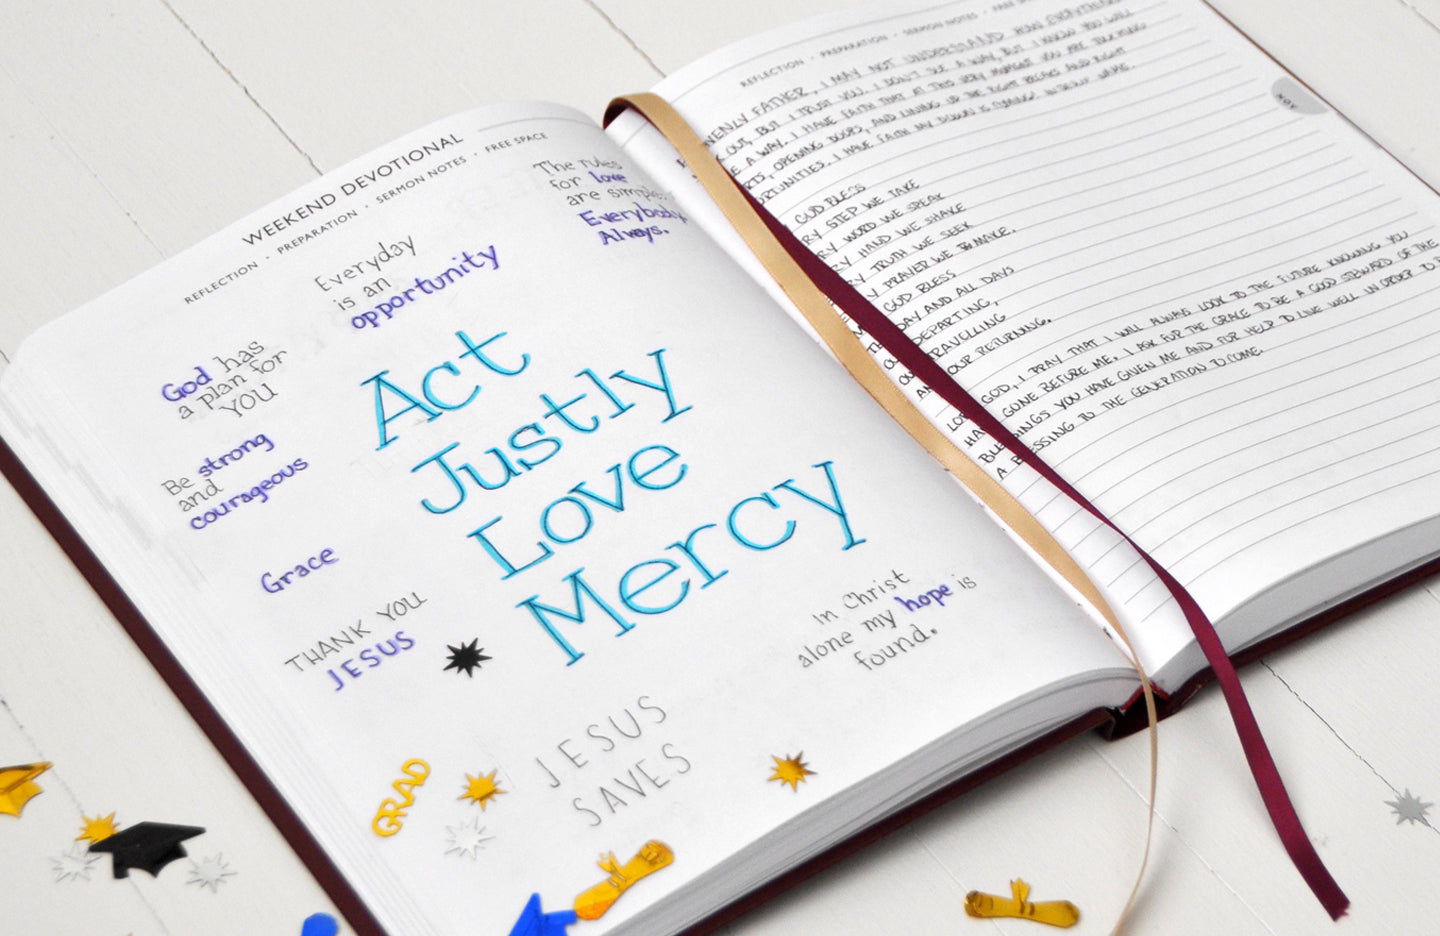 WEEKEND DEVOTIONAL
REFLECTION • PREPARATION • SERMON NOTES • FREE SPACE
The rules
for love
are simple:
Everybody,
Always.
Everyday
is an
opportunity
God has
a plan for
YOU
Be strong
and
courageous
Grace
THANK YOU
JESUS
Act
Justly
Love
Mercy
In Christ
alone my hope is
found.
JESUS
SAVES
GRAD
REFLECTION • PREPARATION • SERMON NOTES • FREE
FATHER, I MAY NOT UNDERSTAND HOW EVERYTHING
OUT, BUT I TRUST YOU. I DON'T SEE A WAY, BUT I KNOW YOU WILL
A WAY. I HAVE FAITH THAT AT THIS VERY MOMENT YOU ARE
OPENING DOORS, AND LINING UP THE RIGHT BREAKS AND RIGHT
I HAVE FAITH MY IN JESUS' NAME.
GOD BLESS
STEP WE TAKE
WORD WE SPEAK
HAND WE SHAKE
TRUTH WE SEEK
PRAYER WE MAKE.
GOD BLESS
DAY AND ALL DAYS
DEPARTING,
TRAVELLING
OUR RETURNING.
GOD, I PRAY THAT I WILL ALWAYS LOOK TO THE FUTURE KNOWING YOU
GONE BEFORE ME. I ASK FOR THE GRACE TO BE A GOOD STEWARD OF THE
YOU HAVE GIVEN ME AND FOR HELP TO LIVE WELL IN ORDER TO
A BLESSING TO THE GENERATION TO COME.